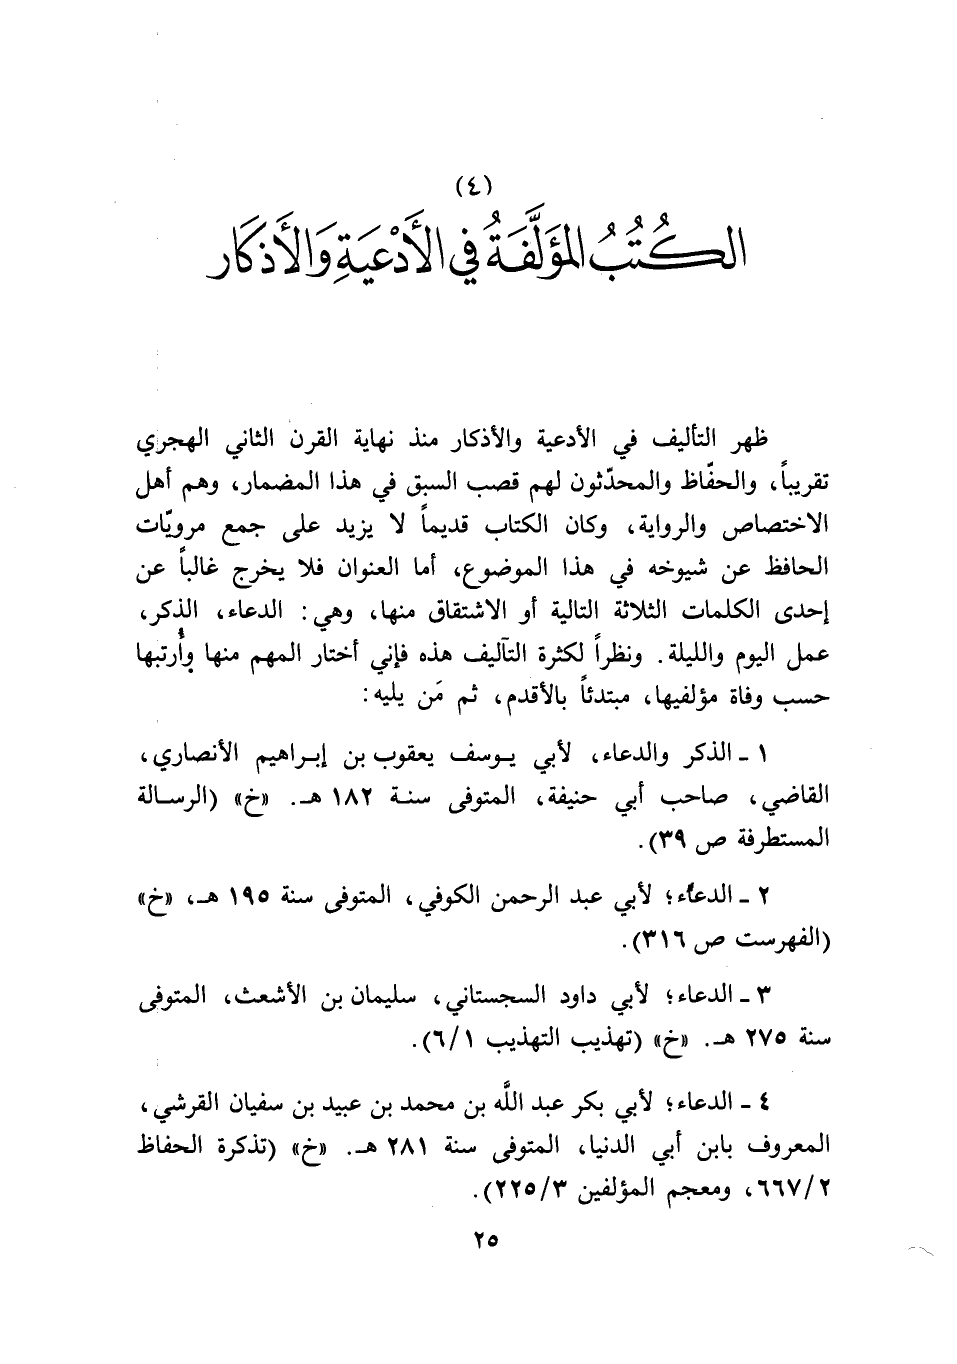 (٤)
الكُتُبُ المؤَلَّفَةُ في الأَدْعيَةِ وَالأَذكَار
ظهر التأليف في الأدعية والأذكار منذ نهاية القرن الثاني الهجري
تقريباً، والحفّاظ والمحدّثون لهم قصب السبق في هذا المضمار، وهم أهل
الاختصاص والرواية، وكان الكتاب قديماً لا يزيد على جمع مرويّات
الحافظ عن شيوخه في هذا الموضوع، أما العنوان فلا يخرج غالباً عن
إحدى الكلمات الثلاثة التالية أو الاشتقاق منها، وهي: الدعاء، الذكر،
عمل اليوم والليلة. ونظراً لكثرة التآليف هذه فإني أختار المهم منها وأُرتبها
حسب وفاة مؤلفيها، مبتدئاً بالأقدم، ثم مَن يليه:
١ ـ الذكر والدعاء، لأبي يوسف يعقوب بن إبراهيم الأنصاري،
القاضي، صاحب أبي حنيفة، المتوفى سنة ١٨٢ هـ. «خ» (الرسالة
المستطرفة ص ٣٩).
٢ ـ الدعاء؛ لأبي عبد الرحمن الكوفي، المتوفى سنة ١٩٥ هـ، «خ»
(الفهرست ص ٣١٦).
٣ ـ الدعاء؛ لأبي داود السجستاني، سليمان بن الأشعث، المتوفى
سنة ٢٧٥ هـ. «خ» (تهذيب التهذيب ٦/١).
٤ ـ الدعاء؛ لأبي بكر عبد اللَّه بن محمد بن عبيد بن سفيان القرشي،
المعروف بابن أبي الدنيا، المتوفى سنة ٢٨١ هـ. «خ» (تذكرة الحفاظ
٦٦٧/٢، ومعجم المؤلفين ٢٢٥/٣).
٢٥